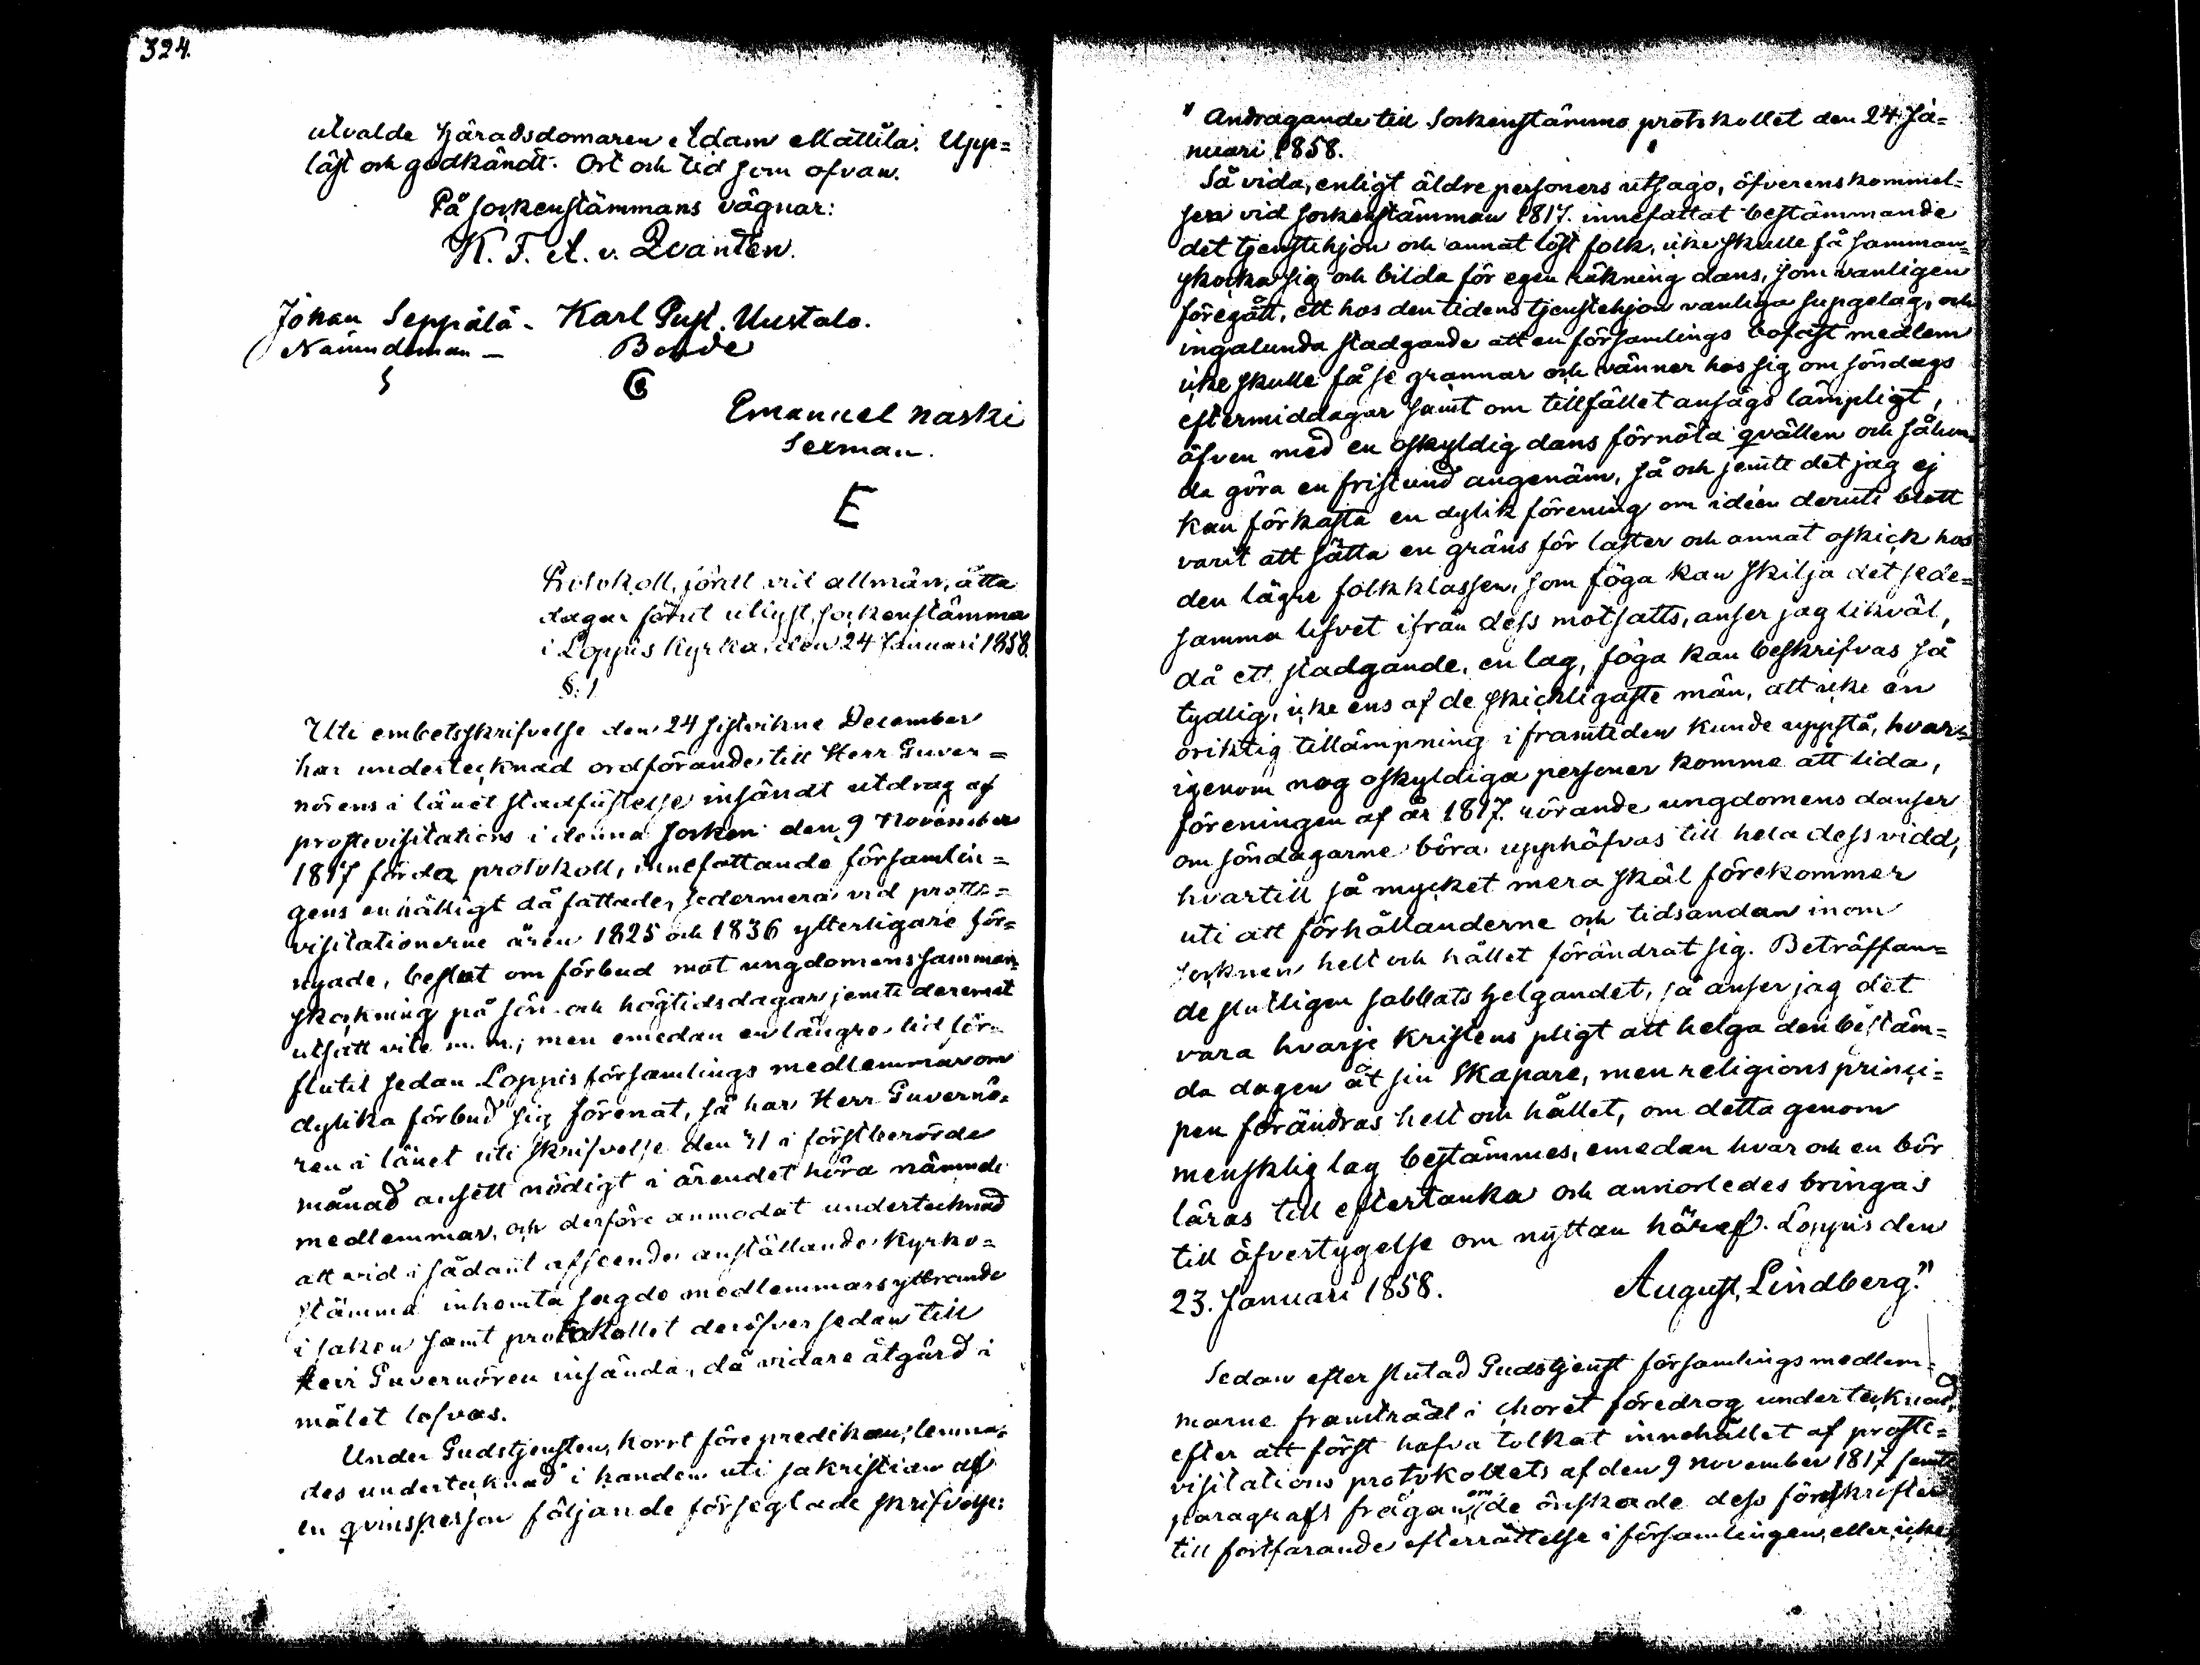 324.
utvalde Häradsdomaren Adam Mattila. Upp=
läst och godkändt. Ort och tid som ofvan.
På sockenstämmans vägnar:
K. F. A. v. Qvanten.
Johan Seppälä - Karl Gust. Uustalo.
Nämndeman - Bonde
Emanuel Naski
Sexman.
E
Protokoll, fördt vid allmän, åtta
dagar förut utlyst, sockenstämma
i Loppis Kyrka, den 24 Januari 1858.
§. 1
Uti embetsskrifvelse den 24 sistvikne December
har undertecknad ordförande till Herr Guver=
nörens i länet stadfästelse insändt utdrag af
prostevisitations i denna socken den 9 November
1817 förda protokoll, innefattande församlin=
gens enhälligt då fattade, sedermera vid proste=
visitationerne åren 1825 och 1836 ytterligare för=
nyade, beslut om förbud mot ungdomens samman=
skockning på sön- och högtidsdagar jemte deremot
utsatt vite m. m.; men emedan en längre tid för=
flutit sedan Loppis församlings medlemmar om
dylika förbud sig förenat, så har Herr Guvernö=
ren i länet uti skrifvelse den 31 i förstberörde
månad ansett nödigt i ärendet höra nämnde
medlemmar, och derföre anmodat undertecknad
att vid i sådant afseende anställande Kyrko=
stämma inhemta sagde medlemmars yttrande
i saken samt protokollet deröfver sedan till
Herr Guvernören insända, då vidare åtgärd i
målet lofvas.
Under Gudstjensten, kort före predikan, lemna=
des undertecknad i handen uti sakristian af
en qvinsperson följande förseglade skrifvelse:
" Andragande till Sockenstämmo protokollet den 24 Ja=
nuari 1858.
Så vida, enligt äldre personers utsago, öfverenskommel=
sen vid sockenstämman 1817. innefattat bestämmande
det tjenstehjon och annat löst folk, icke skulle få samman=
skocka sig och bilda för egen räkning dans, som vanligen
föregått, ett hos den tidens tjenstehjon vanliga supgelag, och
ingalunda stadgande att en församlings bofast medlem
icke skulle få se grannar och vänner hos sig om söndags
eftermiddagar samt om tillfället ansågs lämpligt,
äfven med en oskyldig dans förnöta qvällen och sålun=
da göra en fristund angenäm, så och jemte det jag ej
kan förkasta en dylik förening om idéen deruti blott
varit att sätta en gräns för laster och annat oskick hos
den lägre folkklassen, som föga kan skilja det sede=
samma lifvet ifrån dess motsatts, anser jag likväl,
då ett stadgande, en lag, föga kan beskrifvas så
tydlig, icke ens af de skickligaste män, att icke en
oriktig tillämpning i framtiden kunde uppstå, hvar=
igenom nog oskyldiga personer komme att lida,
föreningen af år 1817. rörande ungdomens danser
om söndagarne böra upphäfvas till hela dess vidd,
hvartill så mycket mera skäl förekommer
uti att förhållanderne och tidsandan inom
socknen helt och hållet förändrat sig. Beträffan=
de slutligen sabbats helgandet, så anser jag det
vara hvarje Kristens pligt att helga den bestäm=
da dagen åt sin Skapare, men religions princi=
pen förändras helt och hållet, om detta genom
mensklig lag bestämmes, emedan hvar och en bör
läras till eftertanka och annorledes bringas
till öfvertygelse om nyttan häraf. Loppis den
23. Januari 1858. August, Lindberg."
Sedan efter slutad Gudstjenst församlingsmedlem=
marne framträdt i choret föredrog undertecknad,
efter att först hafva tolkat innehållet af proste=
visitations protokollets af den 9 November 1817 femte
paragraf, frågan, om de önskade dess föreskrifter
till fortfarande efterrättelse i församlingen, eller icke